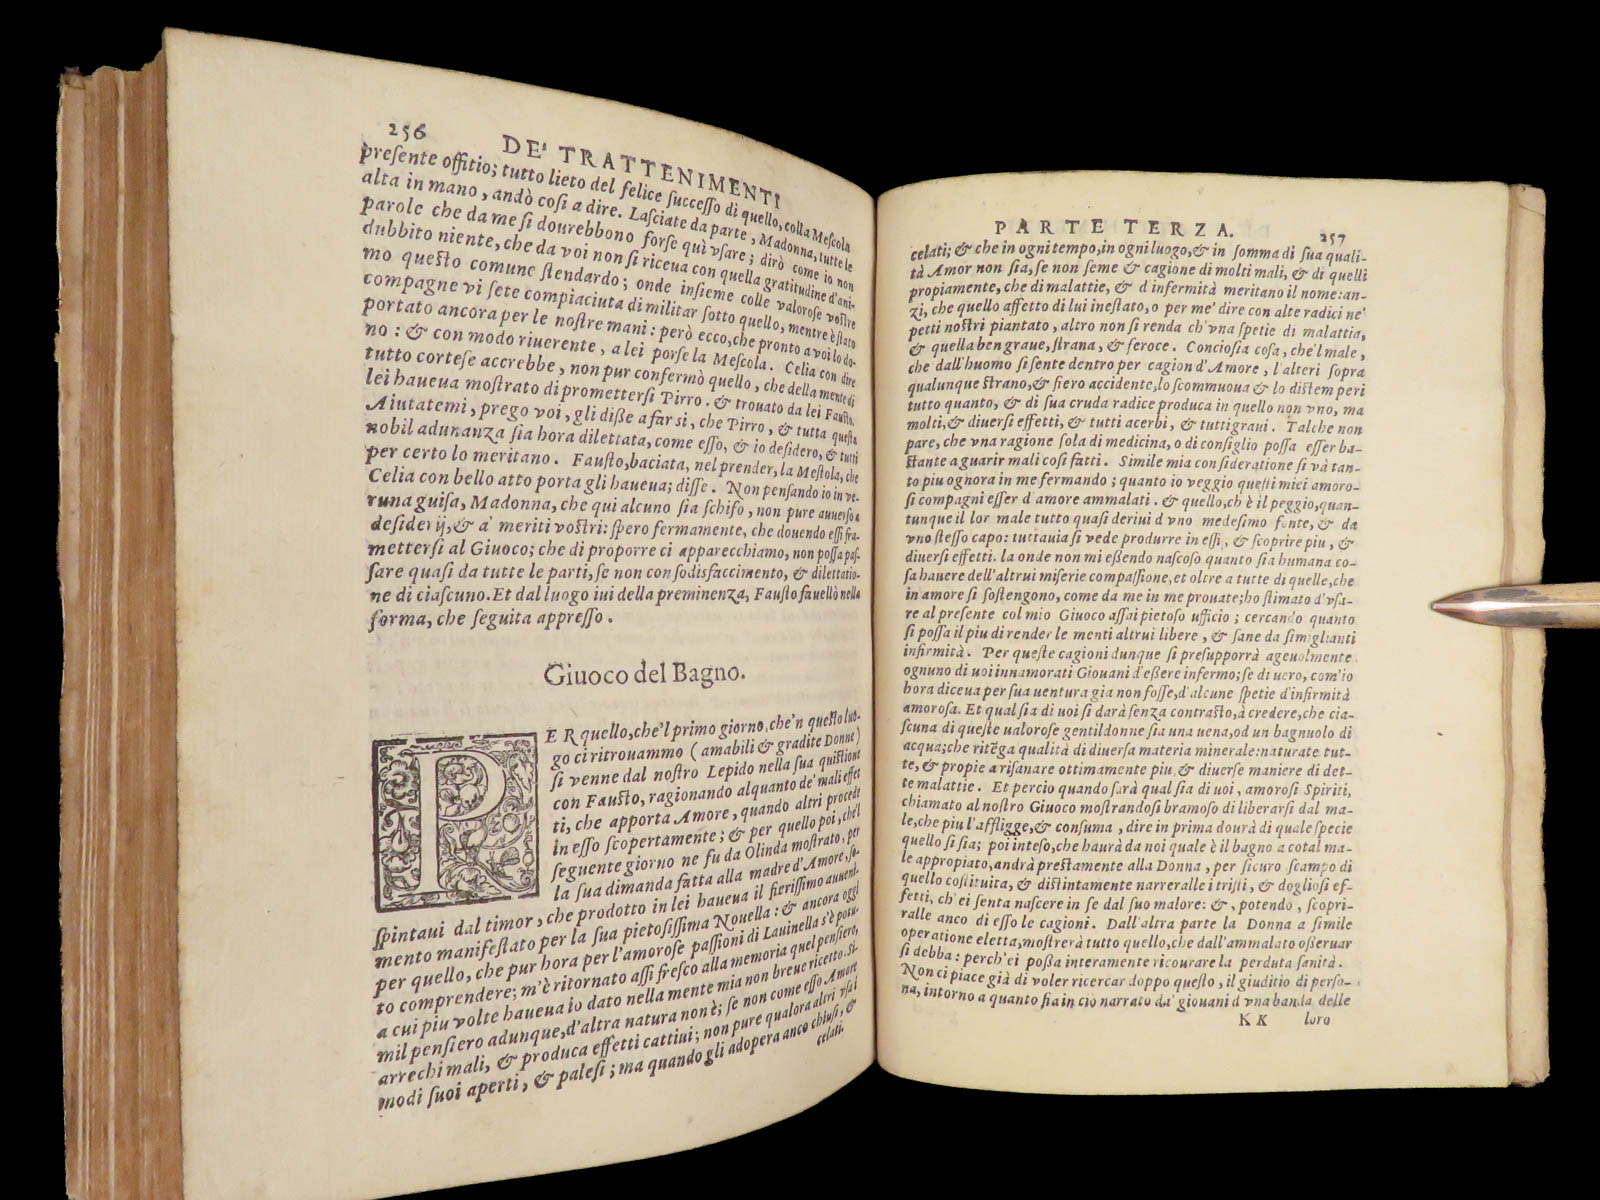 256
DE' TRATTENIMENTI
preſente offitio; tutto lieto del felice ſucceſſo di quello, colla Meſcola
alta in mano, andò coſi a dire. Laſciate da parte, Madonna, tutte le
parole che da me ſi dourebbono forſe quì vſare; dirò come io non
dubbito niente, che da voi non ſi riceua con quella gratitudine d'ani-
mo queſto comune ſtendardo; onde inſieme colle valoroſe voſtre
compagne vi ſete compiaciuta di militar ſotto quello, mentre è ſtato
portato ancora per le noſtre mani: però ecco, che pronto a voi lo do-
no: & con modo riuerente, a lei porſe la Meſcola. Celia con dire
tutto corteſe accrebbe, non pur confermò quello, che della mente di
lei haueua moſtrato di prometterſi Pirro. & trouato da lei Fauſto.
Aiutatemi, prego voi, gli diſſe a far sì, che Pirro, & tutta queſta
nobil adunanza ſia hora dilettata, come eſſo, & io deſidero, & tutti
per certo lo meritano. Fauſto, baciata, nel prender, la Meſtola, che
Celia con bello atto porta gli haueua; diſſe. Non penſando io in ve-
runa guiſa, Madonna, che qui alcuno ſia ſchifo, non pure auuerſo a
deſiderij, & a' meriti voſtri: ſpero fermamente, che douendo eſſi fra-
metterſi al Giuoco; che di proporre ci apparecchiamo, non poſſa paſ-
ſare quaſi da tutte le parti, ſe non con ſodisfaccimento, & dilettatio-
ne di ciaſcuno. Et dal luogo iui della preminenza, Fauſto fauellò nella
forma, che ſeguita appreſſo.
Giuoco del Bagno.
PER quello, che'l primo giorno, che'n queſto luo-
go ci ritrouammo (amabili & gradite Donne)
ſi venne dal noſtro Lepido nella ſua quiſtione
con Fauſto, ragionando alquanto de' mali effet
ti, che apporta Amore, quando altri procede
in eſſo ſcopertamente; & per quello poi, ch'el
ſeguente giorno ne fu da Olinda moſtrato, per
la ſua dimanda fatta alla madre d'Amore, ſo-
ſpintaui dal timor, che prodotto in lei haueua il fieriſſimo auueni-
mento manifeſtato per la ſua pietoſiſſima Nouella: & ancora oggi
per quello, che pur hora per l'amoroſe paſſioni di Lauinella s'è potu-
to comprendere; m'è ritornato aſſi freſco alla memoria quel penſiero,
a cui piu volte haueua io dato nella mente mia non breue ricetto. Si-
mil penſiero adunque, d'altra natura non è; ſe non come eſſo Amore
arrechi mali, & produca effetti cattiui; non pure qualora altri vſa i
modi ſuoi aperti, & paleſi; ma quando gli adopera anco chiuſi, &
celati.
PARTE TERZA.
257
celati; & che in ogni tempo, in ogni luogo, & in ſomma di ſua quali-
tà Amor non ſia, ſe non ſeme & cagione di molti mali, & di quelli
propiamente, che di malattie, & d'infermità meritano il nome: an-
zi, che quello affetto di lui ineſtato, o per me' dire con alte radici ne'
petti noſtri piantato, altro non ſi renda ch'vna ſpetie di malattia,
& quella ben graue, ſtrana, & feroce. Concioſia coſa, che'l male,
che dall'huomo ſi ſente dentro per cagion d'Amore, l'alteri ſopra
qualunque ſtrano, & fiero accidente, lo ſcommuoua & lo diſtem peri
tutto quanto, & di ſua cruda radice produca in quello non vno, ma
molti, & diuerſi effetti, & tutti acerbi, & tutti graui. Talche non
pare, che vna ragione ſola di medicina, o di conſiglio poſſa eſſer ba-
ſtante a guarir mali coſi fatti. Simile mia conſideratione ſi và tan-
to piu ognora in me fermando; quanto io veggio queſti miei amoro-
ſi compagni eſſer d'amore ammalati. & quello, ch'è il peggio, quan-
tunque il lor male tutto quaſi deriui d'vno medeſimo fonte, & da
vno ſteſſo capo: tuttauia ſi vede produrre in eſſi, & ſcoprire piu, &
diuerſi effetti. la onde non mi eſſendo naſcoſo quanto ſia humana co-
ſa hauere dell'altrui miſerie compaſſione, et oltre a tutte di quelle, che
in amore ſi ſoſtengono, come da me in me prouate; ho ſtimato d'vſa-
re al preſente col mio Giuoco aſſai pietoſo ufficio; cercando quanto
ſi poſſa il piu di render le menti altrui libere, & ſane da ſimiglianti
infirmità. Per queſte cagioni dunque ſi presupporrà ageuolmente
ognuno di uoi innamorati Giouani d'eſſere infermo; ſe di uero, com'io
hora diceua per ſua uentura gia non foſſe, d'alcune ſpetie d'infirmità
amoroſa. Et qual ſia di uoi ſi darà ſenza contraſto, à credere, che cia-
ſcuna di queſte ualoroſe gentildonne ſia una uena, od un bagnuolo di
acqua; che ritẽga qualità di diuerſa materia minerale: naturate tut-
te, & propie a riſanare ottimamente piu & diuerſe maniere di det-
te malattie. Et percio quando ſarà qual ſia di uoi, amoroſi Spiriti,
chiamato al noſtro Giuoco moſtrandoſi bramoſo di liberarſi dal ma-
le, che piu l'affligge, & conſuma, dire in prima dourà di quale ſpecie
quello ſi ſia; poi inteſo, che haurà da noi quale è il bagno a cotal ma-
le appropiato, andrà preſtamente alla Donna, per ſicuro ſcampo di
quello coſtituita, & diſtintamente narreralle i triſti, & doglioſi ef-
fetti, ch'ei ſenta naſcere in ſe dal ſuo malore: &, potendo, ſcopri-
ralle anco di eſſo le cagioni. Dall'altra parte la Donna a ſimile
operatione eletta, moſtrerà tutto quello, che dall'ammalato oſſeruar
ſi debba: perch'ei poſſa interamente ricourare la perduta ſanità.
Non ci piace già di voler ricercar doppo queſto, il giuditio di perſo-
na, intorno a quanto ſia in ciò narrato da' giouani d'vna banda delle
KK loro